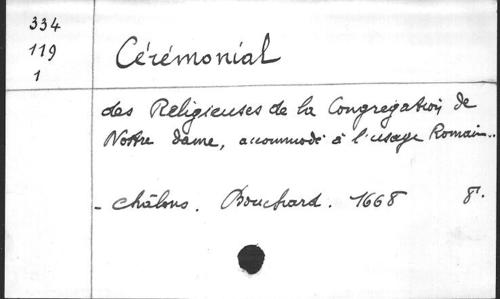 334
119
1
Cérémonial
des Religieuses de la Congrégation de
Nostre Dame, accommodé à l'usage Romain..
- Châlons. Bouchard. 1668 8°.